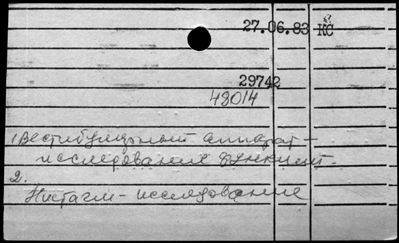 27.06.83 КС
29742
48014
1) Вестибулярный аппарат -
исследование функций.
2.
Нистагм - исследование